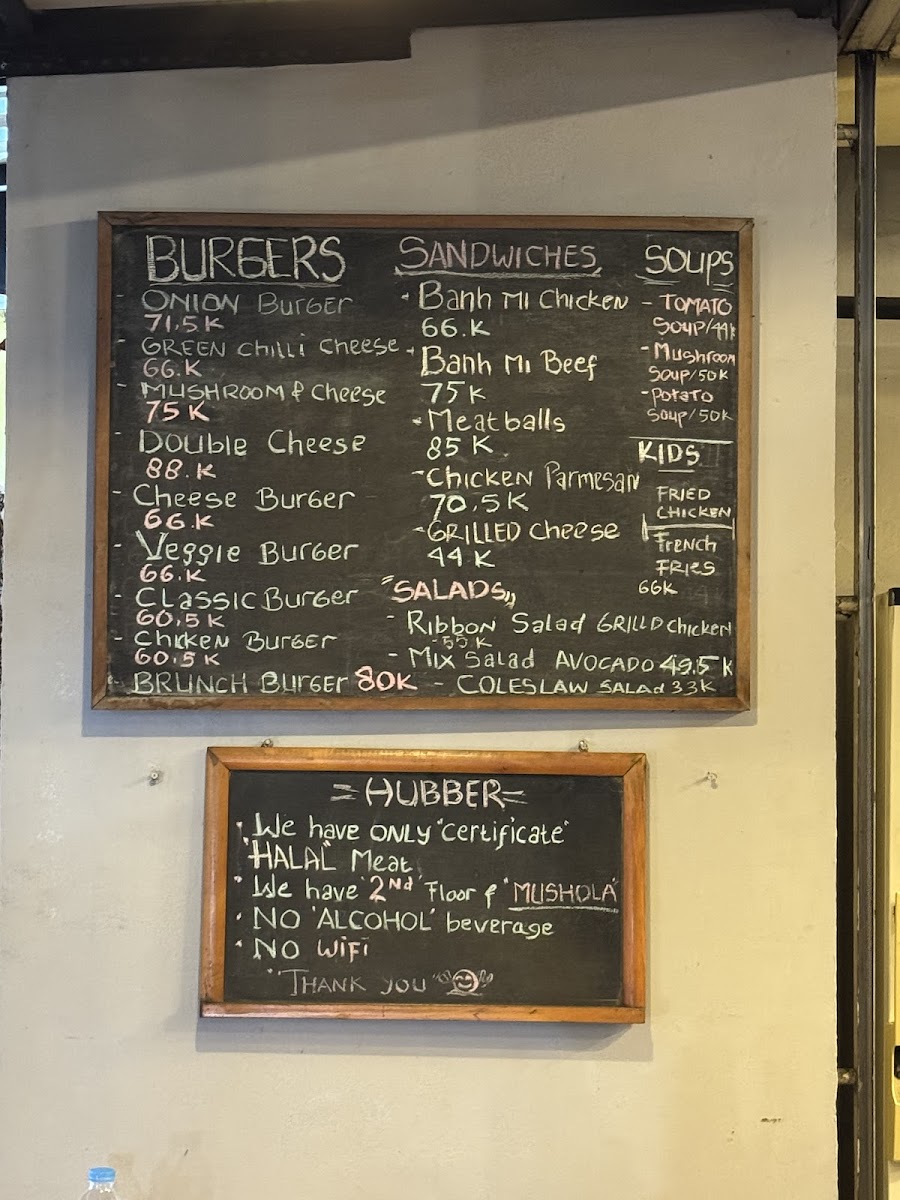 BURGERS
- ONION Burger
71,5 K
- GREEN chilli cheese
66.K
- MUSHROOM & Cheese
75 K
- Double Cheese
88.K
- Cheese Burger
66.K
- Veggie Burger
66.K
- Classic Burger
60,5 K
- Chicken Burger
60.5 K
- BRUNCH Burger 80K
SANDWICHES
- Banh Mi Chicken
66.K
- Banh Mi Beef
75K
- Meatballs
85 K
- Chicken Parmesan
70,5K
- GRILLED Cheese
44 K
"SALADS"
- Ribbon Salad GRILLD chicken
- 55 K
- Mix Salad AVOCADO 49.5 K
- COLESLAW SALAd 33K
Soups
- TOMATO
Soup/44K
- Mushroom
Soup/50K
- Potato
Soup/50K
KIDS
FRIED
CHICKEN
French
FRIES
66K
=HUBBER=
• We have ONLY "certificate"
"HALAL" Meat
• We have "2nd" Floor & "MUSHOLA"
• NO "ALCOHOL" beverage
• NO WiFi
"THANK YOU"